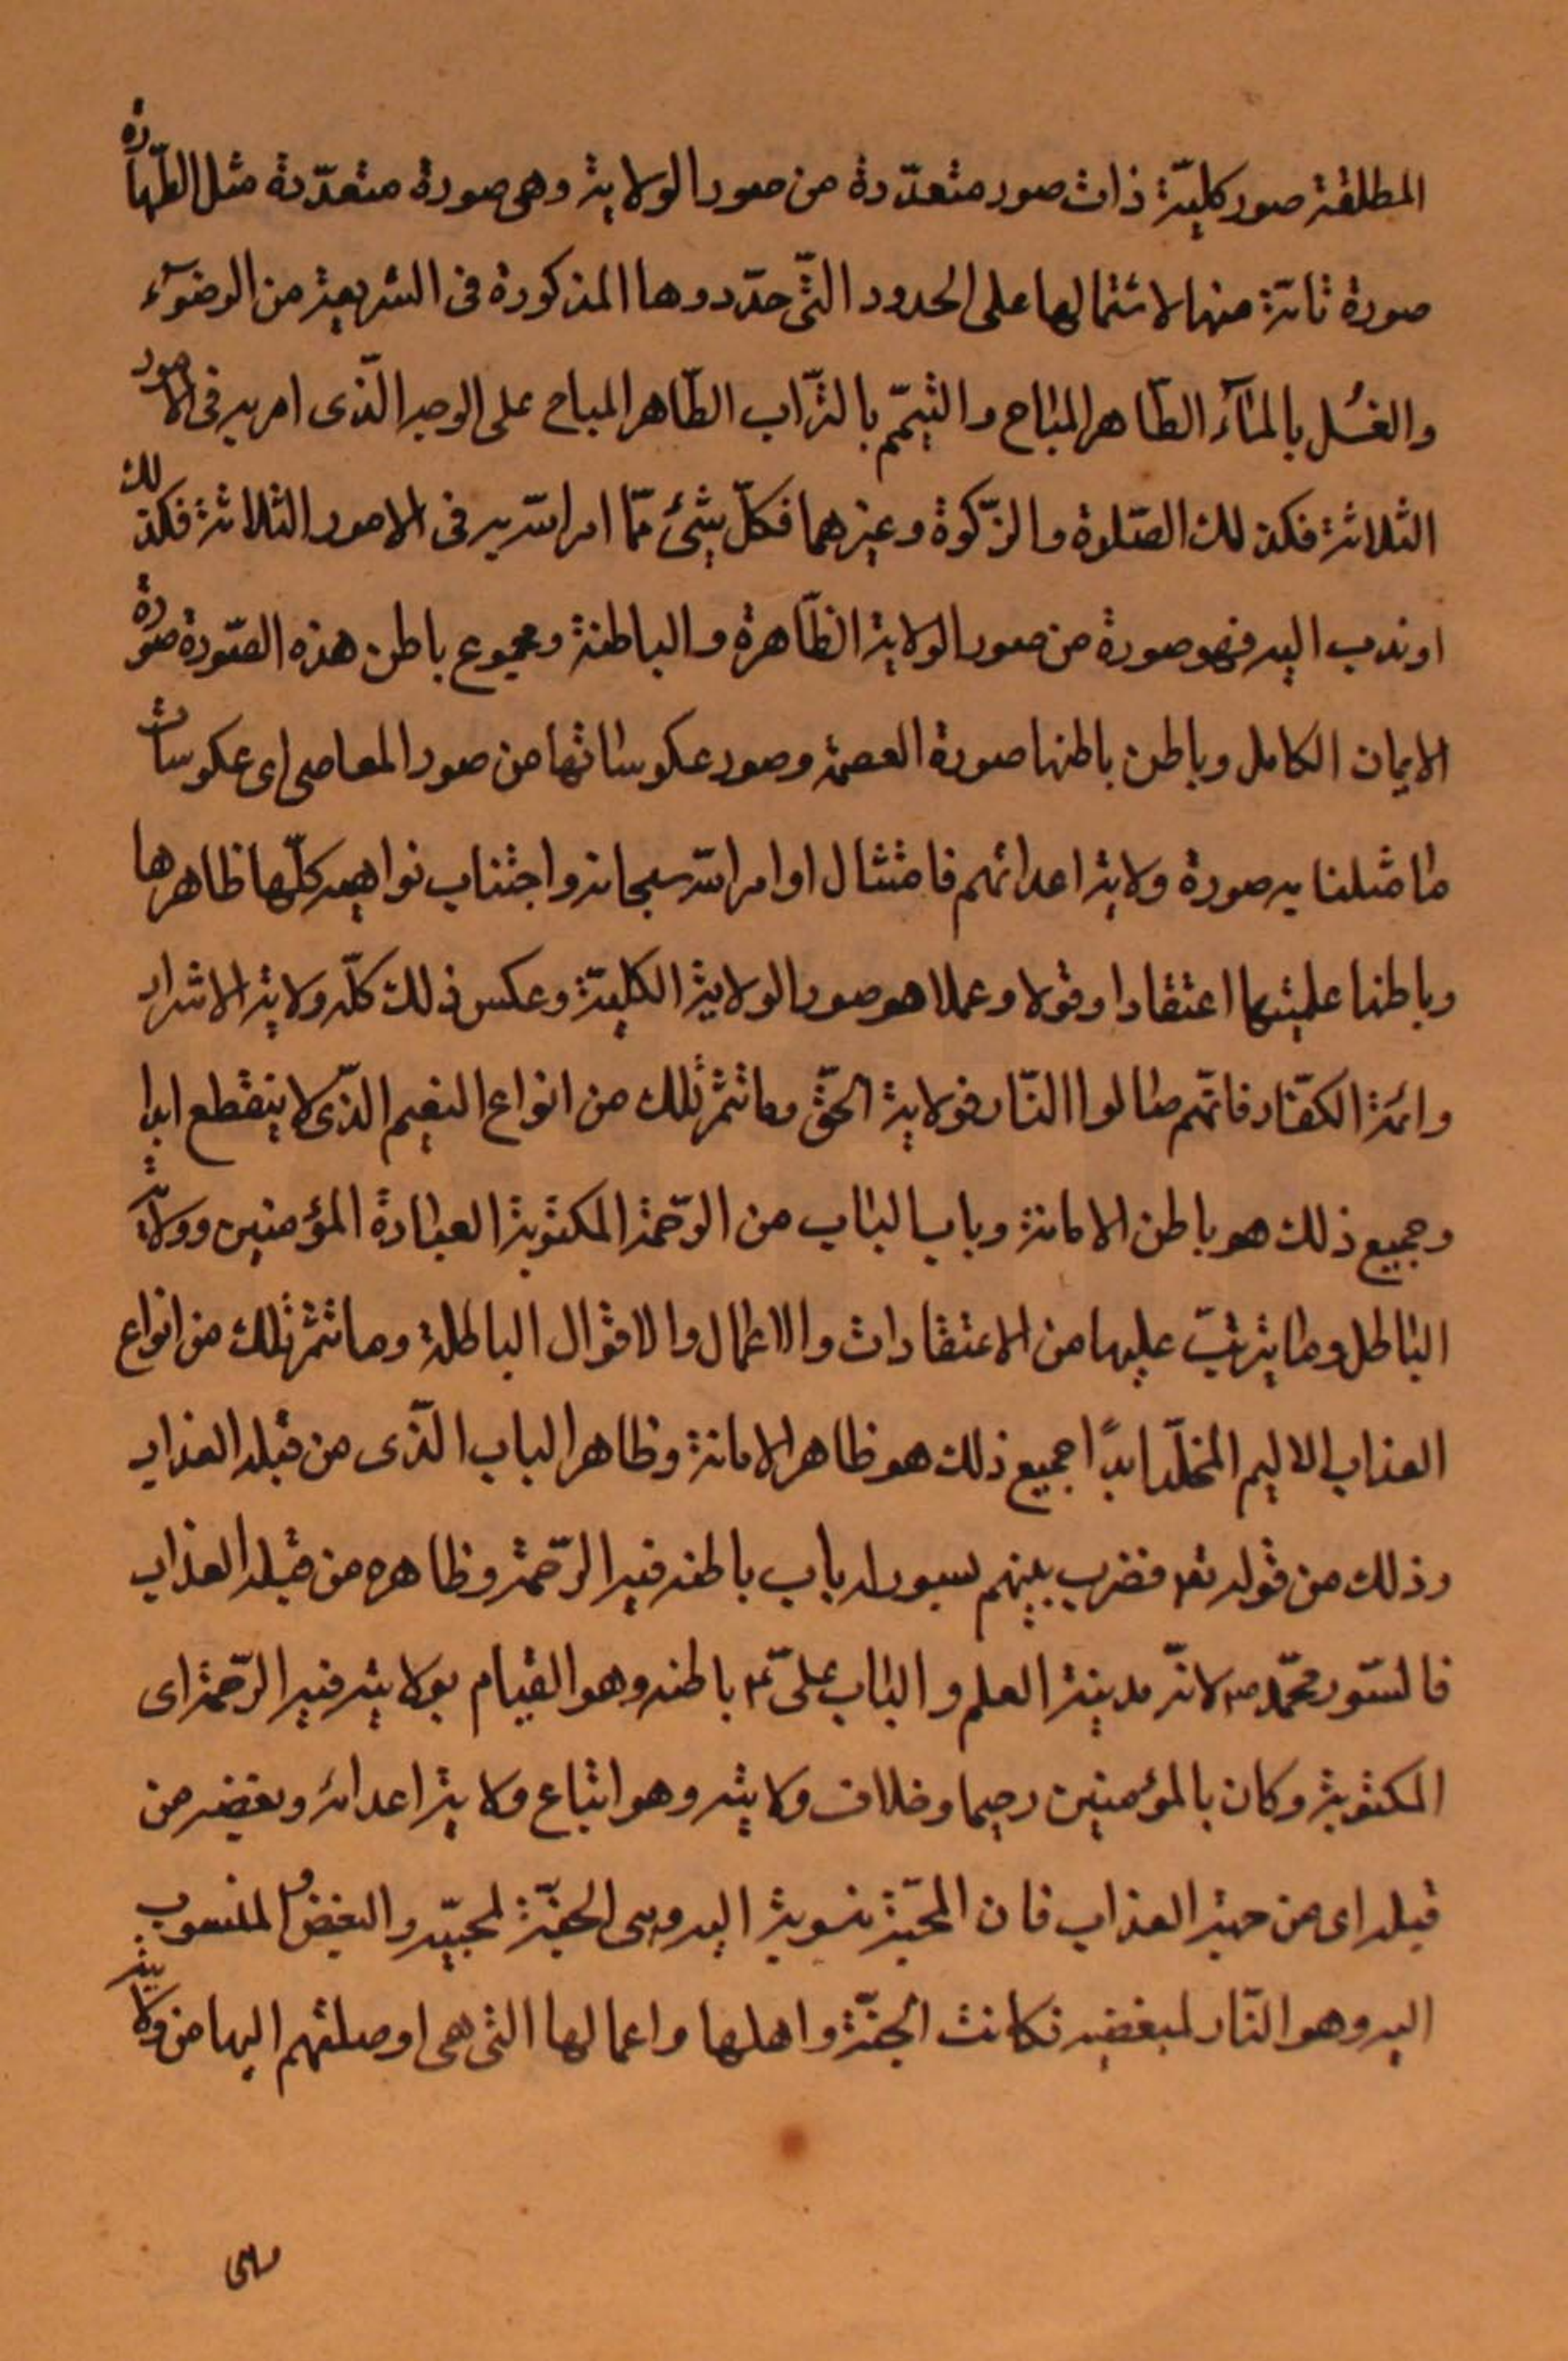 المطلقة صور كليّة ذات صور متعدّدة من صور الولاية وهى صورة متعدّدة مثل الطّهارة
صورة تامّة منها لاشتمالها على الحدود التّى حدّدوها المذكورة فى الشريعة من الوضوۤء
والغُسل بالمۤاء الطّاهر المباح والتيمّم بالتّراب الطّاهر المباح على الوجه الّذى امر به فى الامور
الثلاثة فكذلك الصّلوة والزّكوة وغيرهما فكلّ شئ ممّا امر اللّه به فى الامور الثلاثة فكذلك
او ندب اليه فهو صورة من صور الولاية الظّاهرة والباطنة ومجموع باطن هذه الصّورة صورة
الايمان الكامل وباطن باطنها صورة العصمة وصور عكوساتها من صور المعاصى اى عكوسات
ما مثلنا به صورة ولاية اعدائهم فامتثال اوامر اللّه سبحانه واجتناب نواهيه كلّها ظاهرها
وباطنها علميتها اعتقادا وقولا وعملا هو صور الولاية الكليّة وعكس ذلك كلّه ولاية الاشرار
وائمة الكفّار فانّهم صالوا النّار فولاية الحّق وما تثمر تلك من انواع النعيم الذّى لا ينقطع ابدا
وجميع ذلك هو باطن الامانة وباب الباب من الرّحمة المكتوبة العبادة المؤمنين وولاية
الباطل وما يترتّب عليها من الاعتقادات والاعمال والاقوال الباطلة وما تثمر تلك من انواع
العذاب الاليم المخلّد ابدًا جميع ذلك هو ظاهر الامانة وظاهر الباب الّذى من قبله العذاب
وذلك من قوله تعا فضرب بينهم بسور له باب باطنه فيه الرّحمة وظاهره من قبله العذاب
فالسّور محمّد ص لانّه مدينة العلم والباب علىّ ع باطنه وهو القيام بولايته فيه الرّحمة اى
المكتوبة وكان بالمؤمنين رحيما وخلاف ولايته وهو اتباع ولاية اعدائه وبغضه من
قبله اى من جهته العذاب فان المحبّة منسوبة اليه وهى الجنّة لمحبّيه والبغض المنسوب
اليه وهو النّار لمبغضيه فكانت الجنّة واهلها واعمالها التى هى اوصلتهم اليها من ولايته